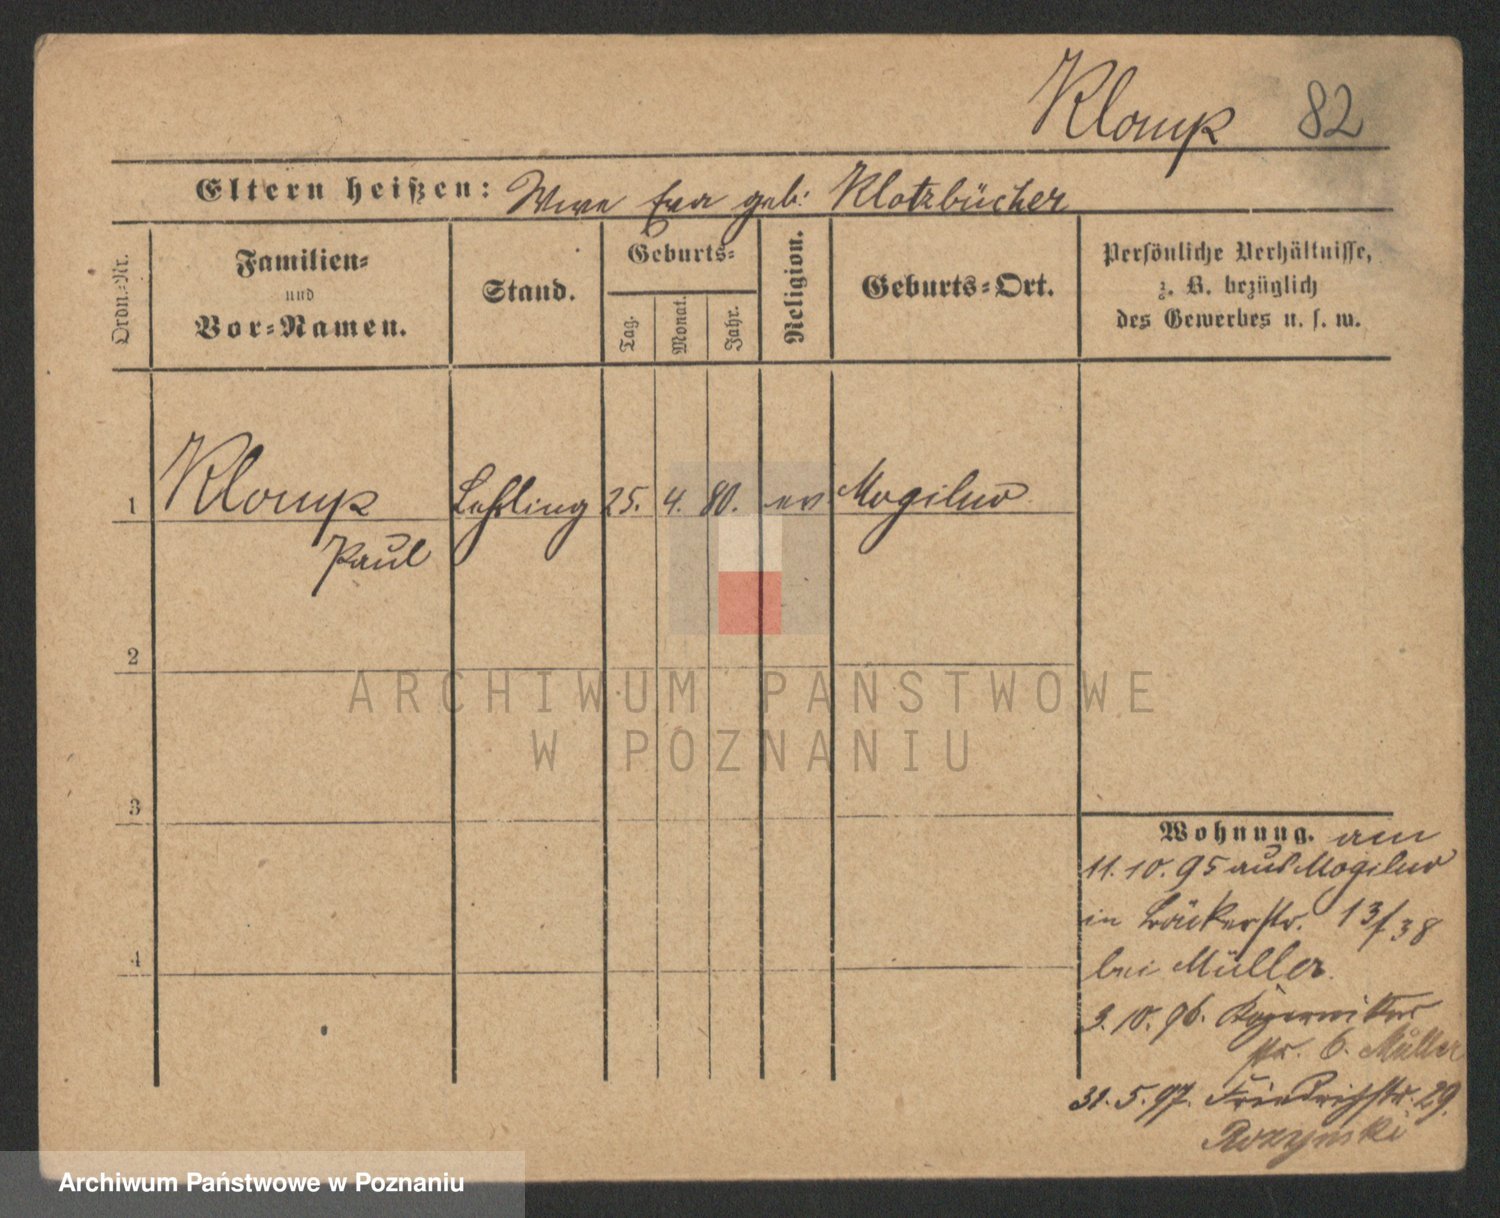 Klomp 82
Eltern heißen: Wwe Eva geb: Klotzbücher
Ordn.-Nr.
Familien-
und
Vor-Namen.
Stand.
Geburts-
Tag.
Monat.
Jahr.
Religion.
Geburts-Ort.
Persönliche Verhältnisse,
z. B. bezüglich
des Gewerbes u. s. w.
1 Klomp Lehrling 25. 4. 80. ev Mogilno
Paul
2
ARCHIWUM PAŃSTWOWE
W POZNANIU
3
Wohnung. am
11. 10. 95 aus Mogilno
in Bäckerstr. 13/38
bei Müller.
4
3. 10. 96.
str. 6. Müller
31. 5. 97. Friedrichstr. 29.
Archiwum Państwowe w Poznaniu